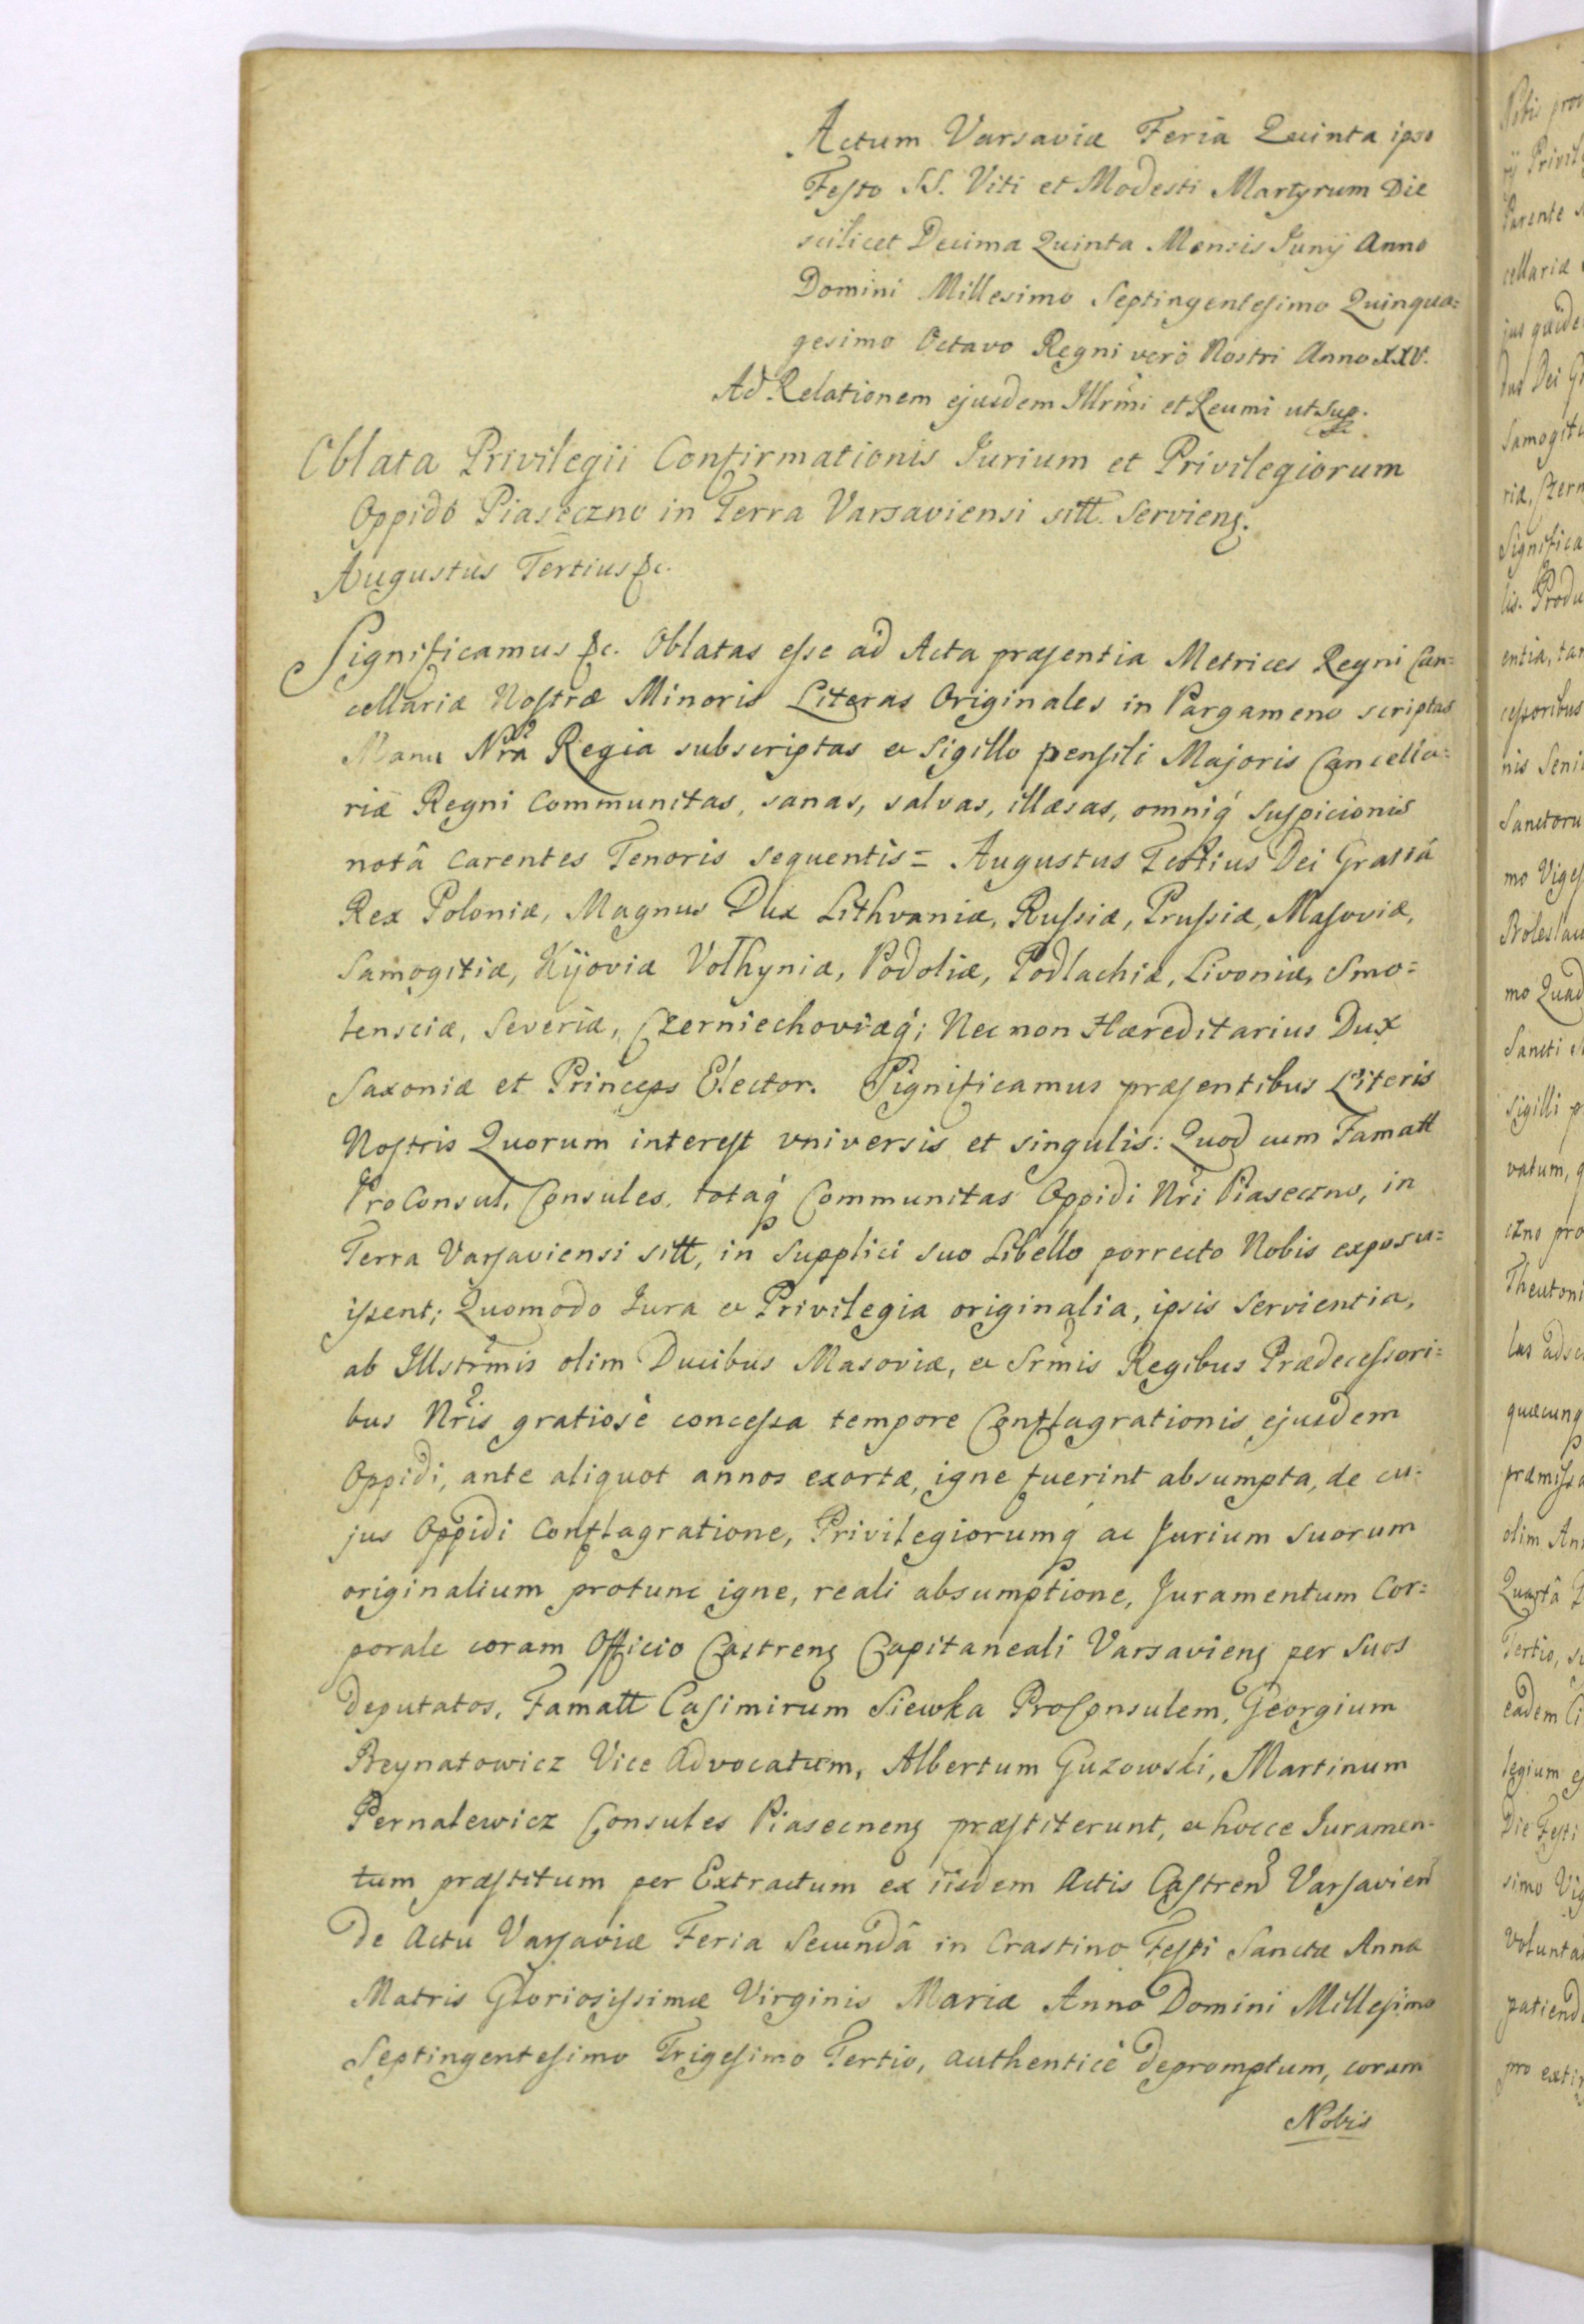 Actum Varsaviæ Feria Quinta ipso
Festo SS. Viti et Modesti Martyrum Die
scilicet Decima Quinta Mensis Junÿ Anno
Domini Millesimo Septingentesimo Quinqua=
gesimo Octavo Regni vero Nostri Anno XXV.
Ad Relationem ejusdem Illrmi et Reumi ut Sup.
Oblata Privilegii Confirmationis Jurium et Privilegiorum
Oppido Piaseczno in Terra Varsaviensi sitt. Servieng.
Augustus Tertius &c.
Significamus &c. Oblatas esse ad Acta præsentia Metrices Regni Can=
cellariæ Nostræ Minoris Literas Originales in Pargameno scriptas
Manu Nrã Regia subscriptas et Sigillo pensili Majoris Cancella=
riæ Regni Communitas, sanas, salvas, illæsas, omniq́ Suspicionis
notâ Carentes Tenoris sequentis = Augustus Tertius Dei Gratiâ
Rex Poloniæ, Magnus Dux Lithvaniæ, Russiæ, Prussiæ, Masoviæ,
Samogitiæ, Kijoviæ Volhyniæ, Podoliæ, Podlachiæ, Livoniæ, Smo=
lensciæ, Severiæ, Czerniechoviæq́; Nec non Hæreditarius Dux
Saxoniæ et Princeps Elector. Significamus præsentibus Literis
Nostris Quorum interest vniversis et singulis: Quod cum Famatt
ProConsul, Consules, totaq́ Communitas Oppidi Nri Piaseczno, in
Terra Varsaviensi sitt, in Supplici suo Libello porrecto Nobis exposu=
issent; Quomodo Jura et Privilegia originalia, ipsis Servientia,
ab Illstrmis olim Ducibus Masoviæ, et Srmis Regibus Prædecessori=
bus Nris gratiosè concessa tempore Conflagrationis ejusdem
Oppidi, ante aliquot annos exortæ, igne fuerint absumpta, de cu=
jus Oppidi Conflagratione, Privilegiorumq́ ac Jurium Suorum
originalium protunc igne, reali absumptione, Juramentum Cor=
porale coram Officio Castreng Capitaneali Varsavieng per Suos
Deputatos, Famatt Casimirum Siewka ProConsulem, Georgium
Beynatowicz Vice Advocatum, Albertum Guzowski, Martinum
Pernalewicz Consules Piasecneng præstiterunt, et hocce Juramen=
tum præstitum per Extractum ex iisdem Actis Castren Varsavien
De Actu Varsaviæ Feria Secundâ in Crastino Festi Sanctæ Annæ
Matris Gloriosissimæ Virginis Mariæ Anno Domini Millesimo
Septingentesimo Trigesimo Tertio, authenticè Depromptum, coram
Nobis